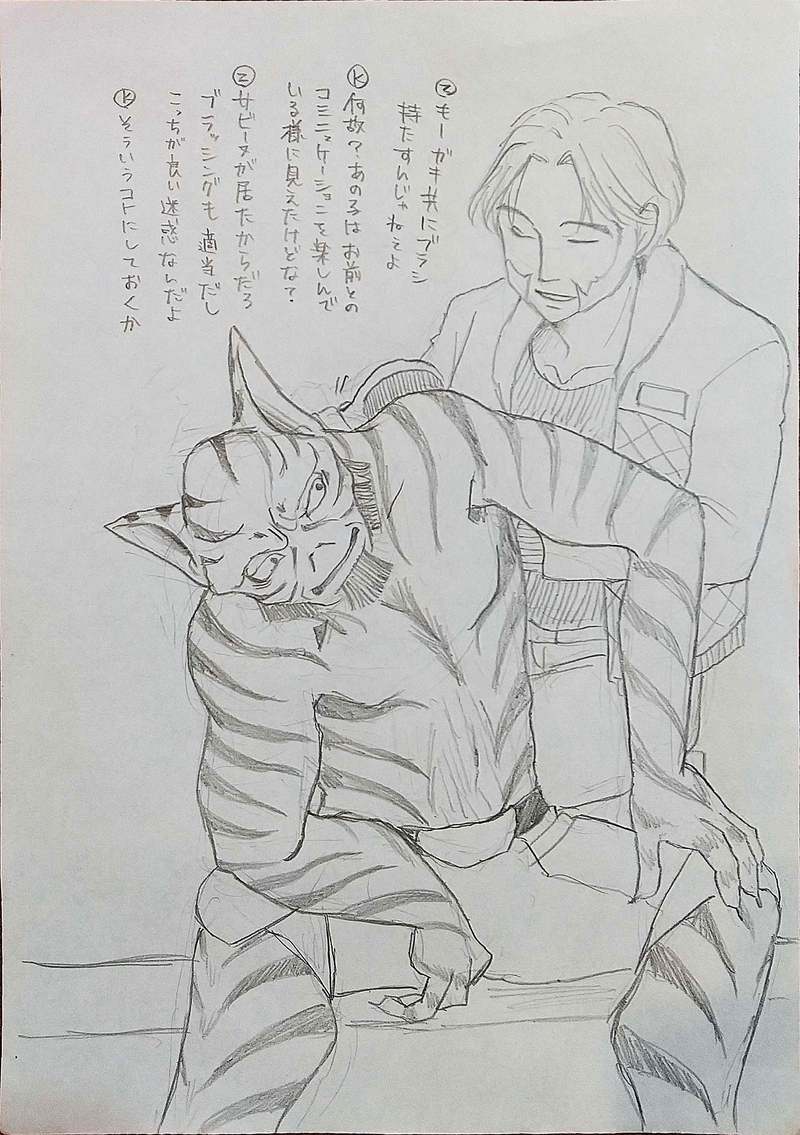 Ⓩもーガキ共にブラシ
持たすんじゃねぇよ
Ⓚ何故？あの子はお前との
コミニュケーションを楽しんで
いる様に見えたけどな？
Ⓩサビーヌが居たからだろ
ブラッシングも適当だし
こっちが良い迷惑なんだよ
Ⓚそういうコトにしておくか